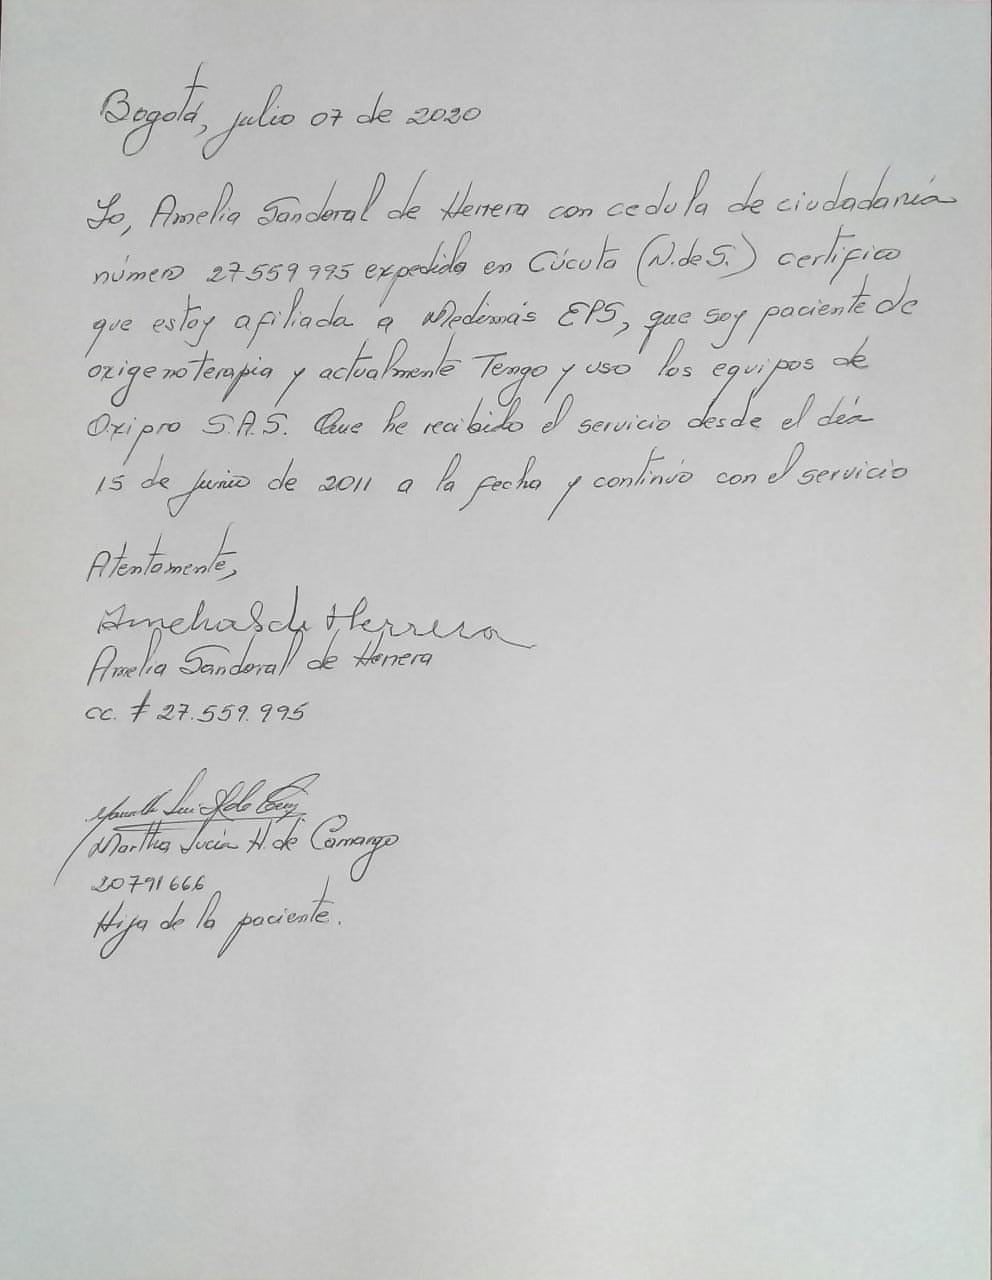 Bogotá, julio 07 de 2020
Yo, Amelia Sandoval de Herrera con cedula de ciudadanía
número 27559995 expedida en Cúcuta (N. de S.) certifico
que estoy afiliada a Medimás EPS, que soy paciente de
oxigenoterapia y actualmente Tengo y uso los equipos de
Oxipro S.A.S. Que he recibido el servicio desde el día
15 de Junio de 2011 a la fecha y continúo con el servicio
Atentamente,
Amelia S de Herrera
Amelia Sandoval de Herrera
cc. # 27.559.995
Martha Lucía H. de Camargo
20791666
Hija de la paciente.